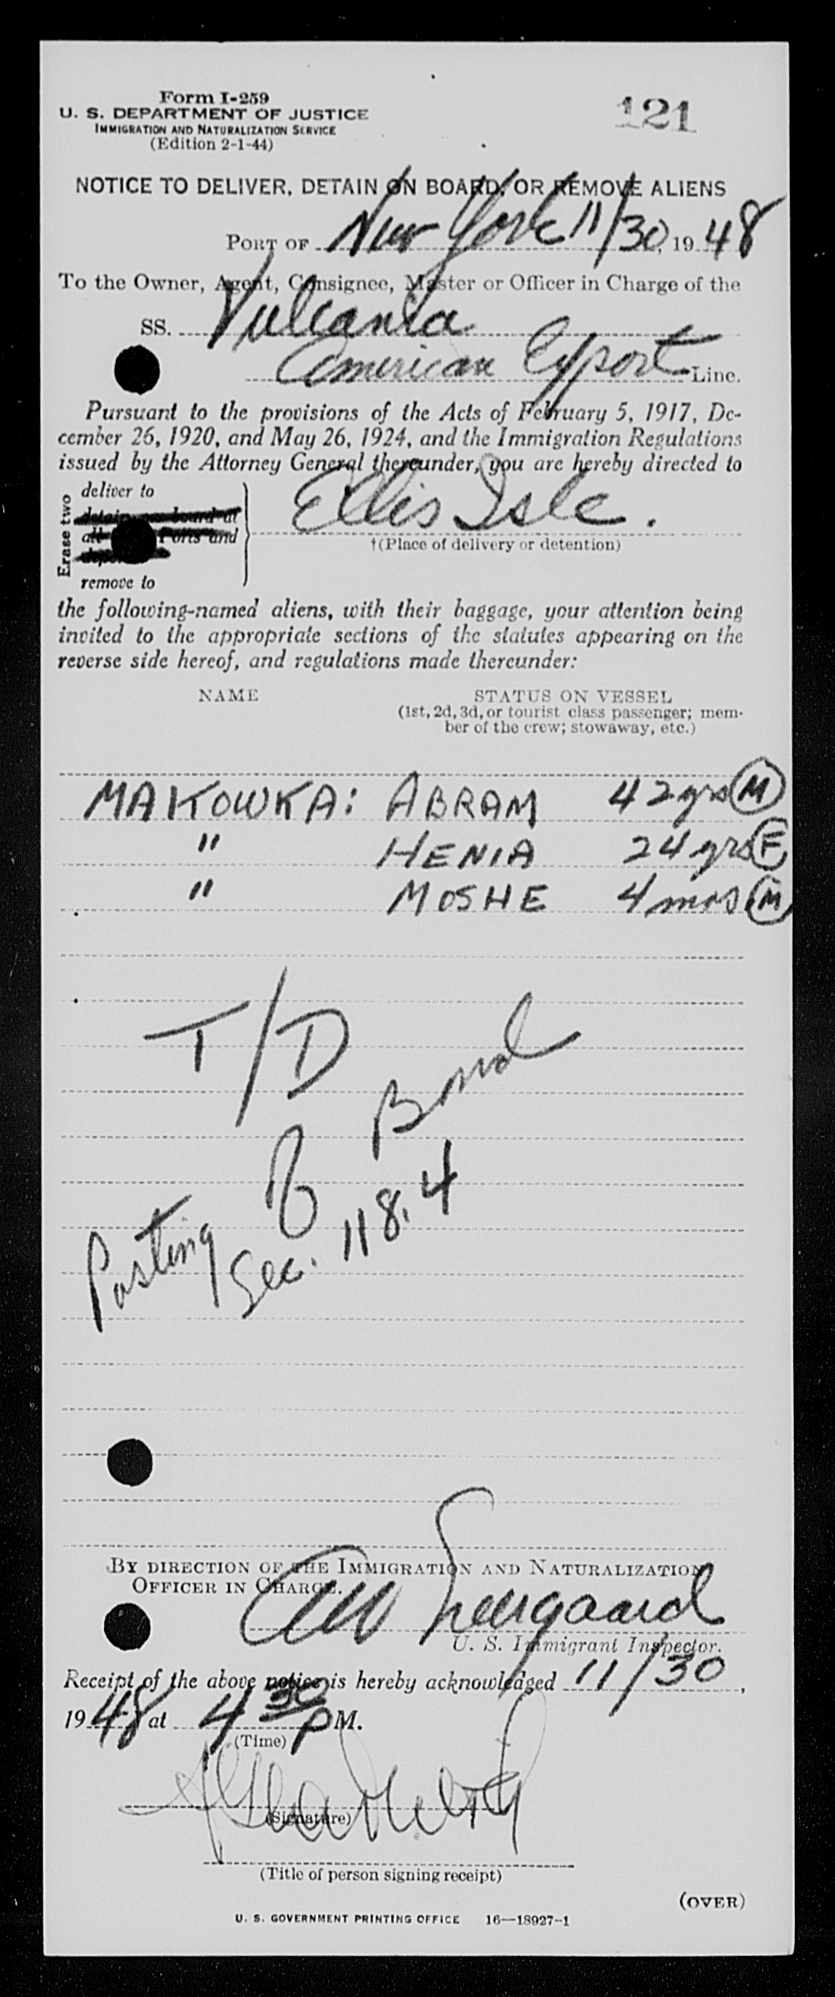 Form I-259
121
U. S. DEPARTMENT OF JUSTICE
IMMIGRATION AND NATURALIZATION SERVICE
(Edition 2-1-44)
NOTICE TO DELIVER, DETAIN ON BOARD, OR REMOVE ALIENS
PORT OF New York 11/30, 1948
To the Owner, Agent, Consignee, Master or Officer in Charge of the
SS. Vulcania
American Export Line.
Pursuant to the provisions of the Acts of February 5, 1917, De-
cember 26, 1920, and May 26, 1924, and the Immigration Regulations
issued by the Attorney General thereunder, you are hereby directed to
Erase two
deliver to
detain on board at
all Ports and
remove to
Ellis Isle.
†(Place of delivery or detention)
the following-named aliens, with their baggage, your attention being
invited to the appropriate sections of the statutes appearing on the
reverse side hereof, and regulations made thereunder:
NAME STATUS ON VESSEL
(1st, 2d, 3d, or tourist class passenger; mem-
ber of the crew; stowaway, etc.)
MAKOWKA: ABRAM 42 yrs M
" HENIA 24 yrs F
" MOSHE 4 mos M
T/D
Posting of Bond
Sec. 118.4
BY DIRECTION OF THE IMMIGRATION AND NATURALIZATION
OFFICER IN CHARGE.
U. S. Immigrant Inspector.
Receipt of the above notice is hereby acknowledged 11/30,
1948 at 4 30 PM.
(Time)
(Signature)
(Title of person signing receipt)
(OVER)
U. S. GOVERNMENT PRINTING OFFICE 16—18927-1